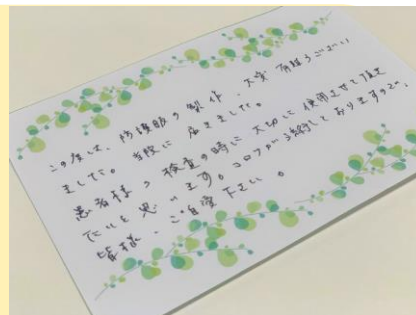 この度は、防護服の製作、大変有難うござい
ました。当院に届きました。
患者様の検査の時に大切に使用させて頂き
たいと思います。コロナが
皆様、ご自愛下さい。